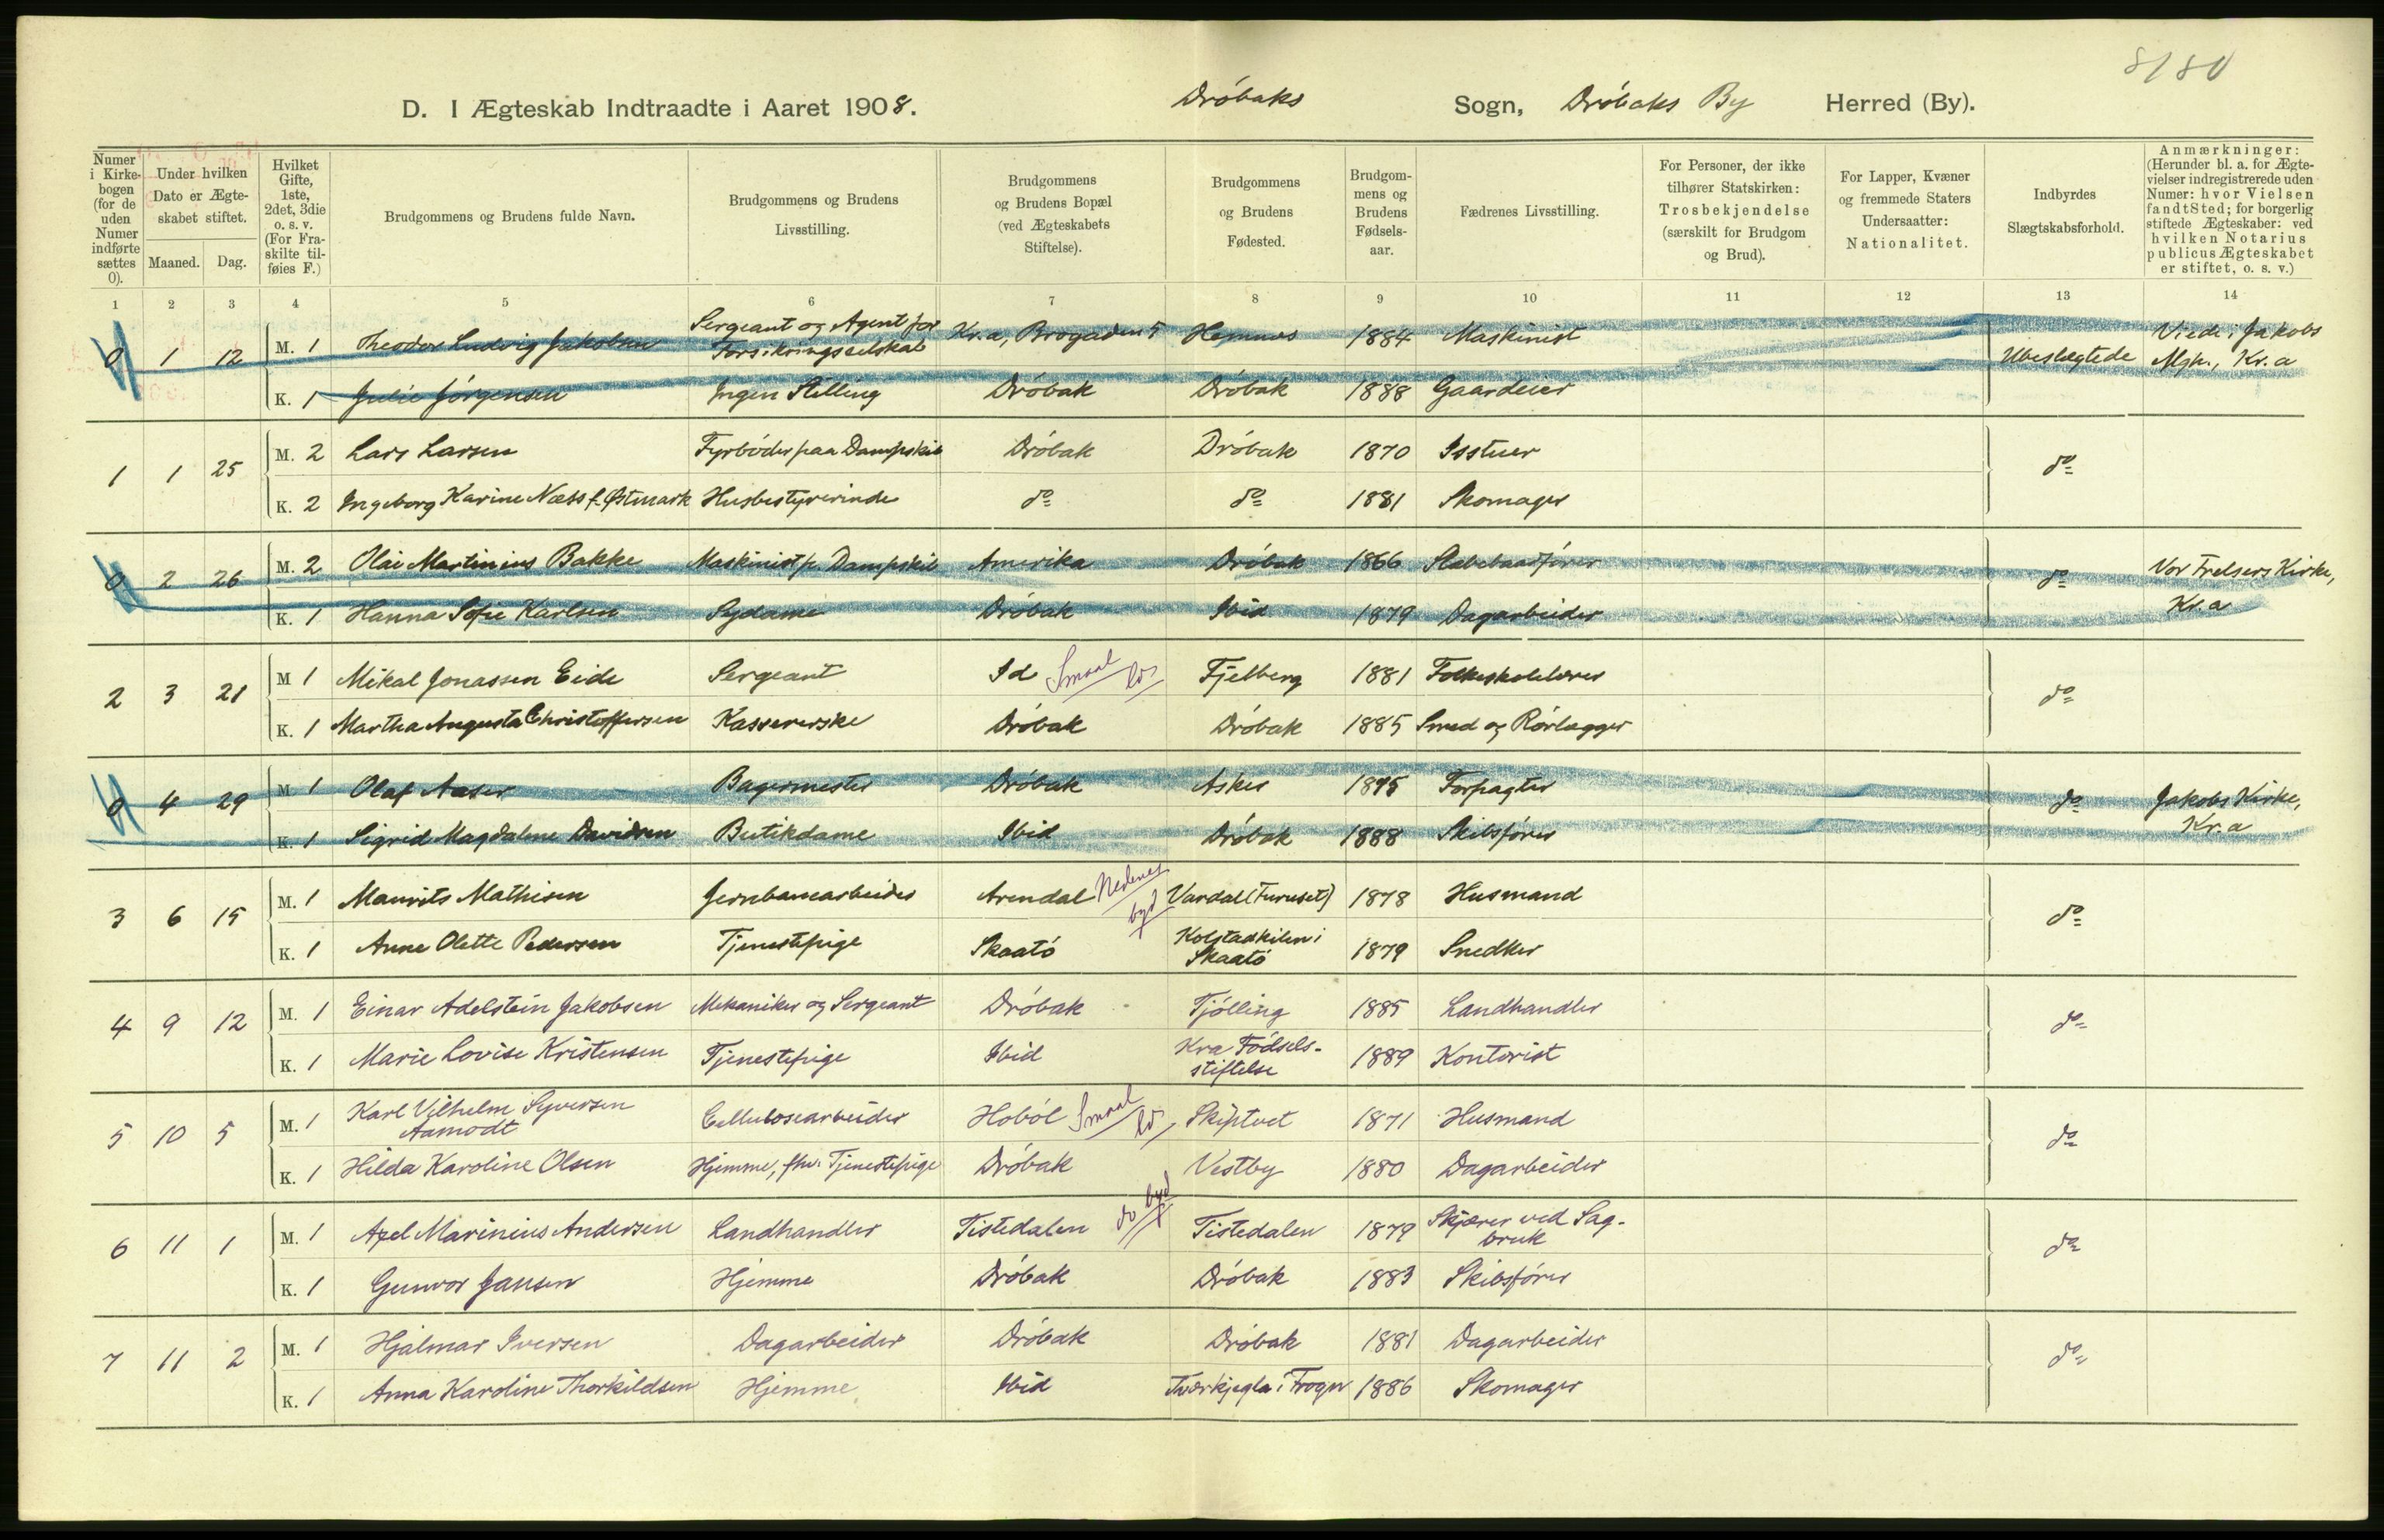 8180
D. I Ægteskab Indtraadte i Aaret 1908. Dröbaks Sogn, Dröbaks By Herred (By).
Numer i Kirkebogen (for de uden Numer indførte sættes 0).
Under hvilken Dato er Ægteskabet stiftet.
Maaned. Dag.
Hvilket Gifte, 1ste, 2det, 3die o. s. v. (For Fraskilte tilføies F.)
Brudgommens og Brudens fulde Navn.
Brudgommens og Brudens Livsstilling.
Brudgommens og Brudens Bopæl (ved Ægteskabets Stiftelse).
Brudgommens og Brudens Fødested.
Brudgommens og Brudens Fødselsaar.
Fædrenes Livsstilling.
For Personer, der ikke tilhører Statskirken: Trosbekjendelse (særskilt for Brudgom og Brud).
For Lapper, Kvæner og fremmede Staters Undersaatter: Nationalitet.
Indbyrdes Slægtskabsforhold.
Anmærkninger: (Herunder bl. a. for Ægtevielser indregistrerede uden Numer: hvor Vielsen fandt Sted; for borgerlig stiftede Ægteskaber: ved hvilken Notarius publicus Ægteskabet er stiftet, o. s. v.)
1 2 3 4 5 6 7 8 9 10 11 12 13 14
0 1 12 M. 1 Theodor Ludvig Jakobsen Sergeant og Agent for Forsikringsselskab Kr.a, Brogaden 5 Hemnes 1884 Maskinist Ubeslegtede Viede i Jakobs Mgh., Kr.a
K. 1 Julie Jörgensen Ingen Stilling Dröbak Dröbak 1888 Gaardeier
1 1 25 M. 2 Lars Larsen Fyrböder paa Dampskib Dröbak Dröbak 1870 Isstuer do
K. 2 Ingeborg Karine Næss f. Østmark Husbestyrerinde do do 1881 Skomager
0 2 26 M. 2 Olai Martinius Bakke Maskinist p. Dampskib Amerika Dröbak 1866 Slæbebaadförer do Vor Frelsers Kirke, Kr.a
K. 1 Hanna Sofie Karlsen Sydame Dröbak Ibid 1879 Dagarbeider
2 3 21 M 1 Mikal Jonassen Eide Sergeant Id Smaal Fjelberg 1881 Folkeskolelærer do
K. 1 Martha Augusta Christoffersen Kassererske Dröbak Dröbak 1885 Smed og Rörlægger
0 4 29 M 1 Olaf Aaser Bagermester Dröbak Asker 1875 Forpagter do Jakobs Kirke, Kr.a
K. 1 Sigrid Magdalene Davidsen Butikdame Ibid Dröbak 1888 Skibsförer
3 6 15 M. 1 Maurits Mathisen Jernbanearbeider Arendal Nedenes byd Vardal (Furuset) 1878 Husmand do
K. 1 Anne Olette Pedersen Tjenestepige Skaatö Kolstadkilen i Skaatö 1879 Snedker
4 9 12 M. 1 Einar Adelstein Jakobsen Mekaniker og Sergeant Dröbak Tjölling 1885 Landhandler do
K. 1 Marie Lovise Kristensen Tjenestepige Ibid Kra Födsels-stiftelse 1889 Kontorist
5 10 5 M. 1 Karl Vilhelm Syversen Aamodt Cellulosearbeider Hoböl Smaal Skiptvet 1871 Husmand do
K. 1 Hilda Karoline Olsen Hjemme, fhv. Tjenestepige Dröbak Vestby 1880 Dagarbeider
6 11 1 M. 1 Axel Marinius Andersen Landhandler Tistedalen do byd Tistedalen 1879 Skjærer ved Sag-bruk do
K. 1 Gunvor Jansen Hjemme Dröbak Dröbak 1883 Skibsförer
7 11 2 M. 1 Hjalmar Iversen Dagarbeider Dröbak Dröbak 1881 Dagarbeider do
K. 1 Anna Karoline Thorkildsen Hjemme Ibid Tværkjegla i Frogn 1886 Skomager